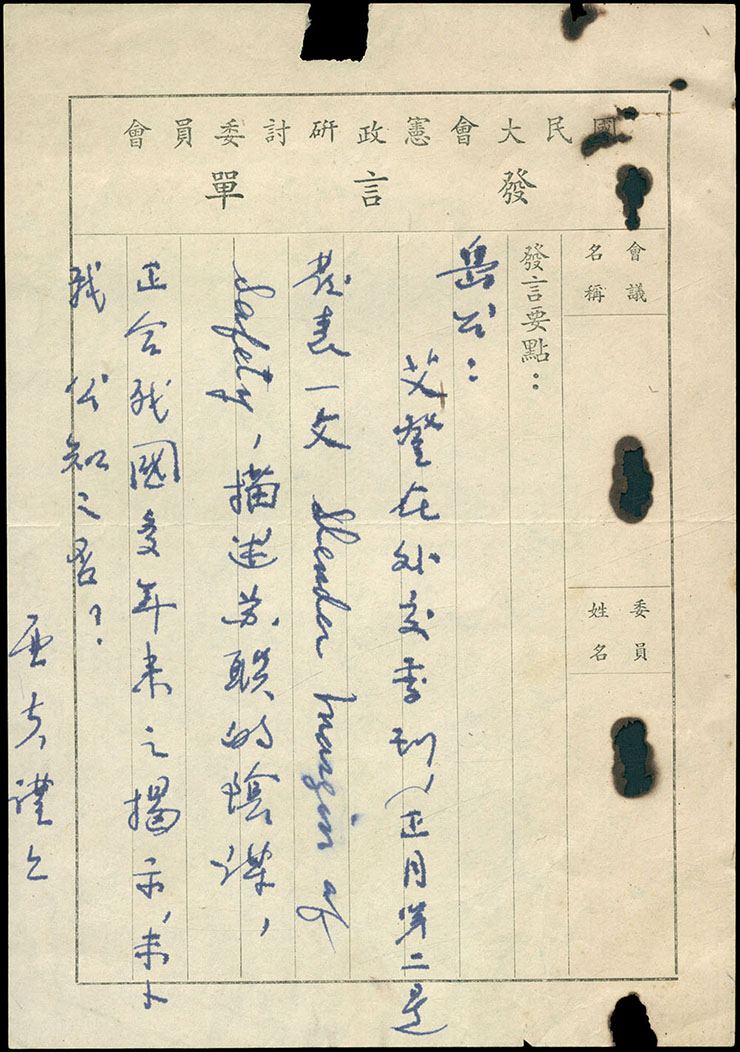 國民大會憲政研討委員會
發言單
會議名稱
委員姓名
發言要點：
岳公：
艾登在外交季刊（正月第二
发表一文 Slender margin of
safety，描述苏联的陰谋，
正合我國多年来之揭示，未卜
我 公知之否？
谨上